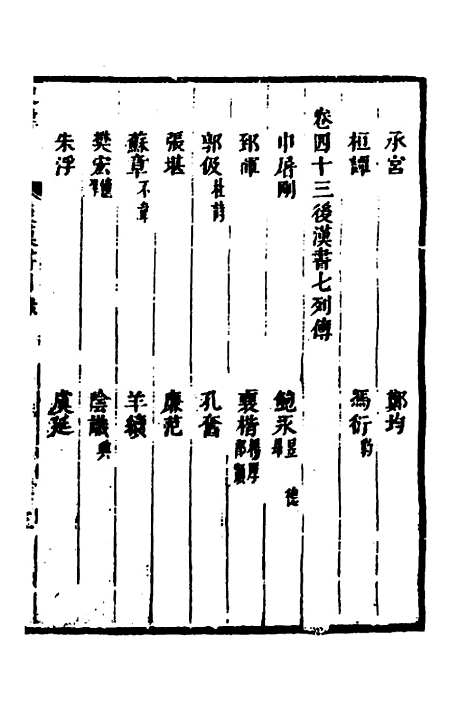 承宮 鄭均
桓譚 馮衍豹
卷四十三後漢書七列傳
申屠剛 鮑永昱 德
郅惲 襄楷楊厚郎顗
郭伋杜詩 孔奮
張堪 廉范
蘇章不韋 羊續
樊宏鯈 陰識興
朱浮 虞延